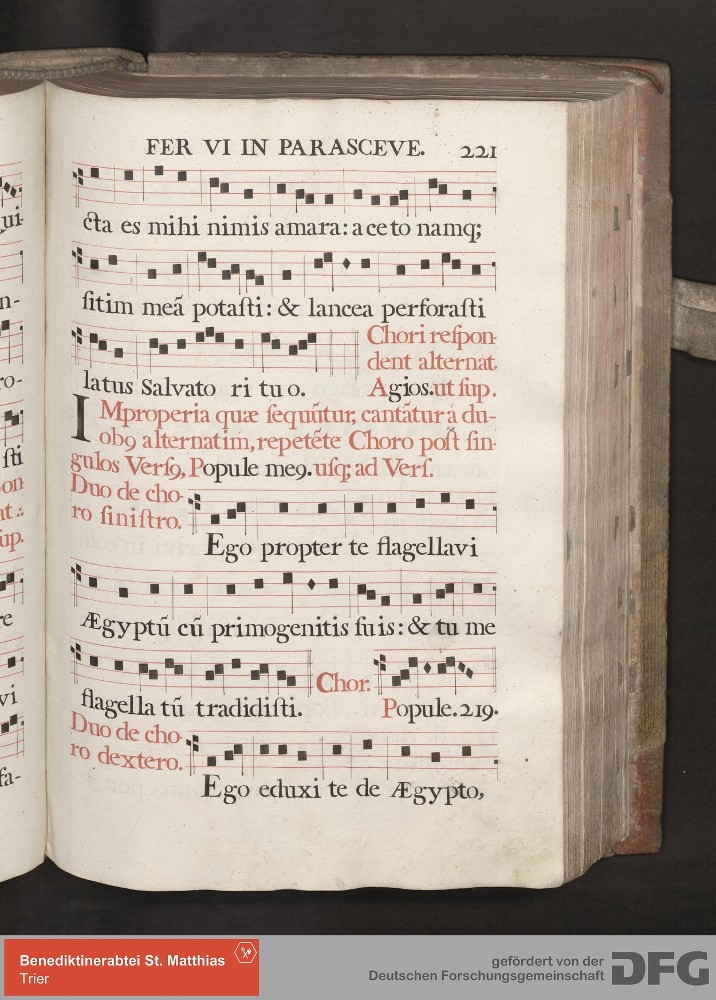 FER VI IN PARASCEVE. 221
cta es mihi nimis amara: aceto namq;
ſitim meã potaſti: & lancea perforaſti
Chori reſpon-
dent alternat.
latus Salvato ri tuo. Agios.ut ſup.
IMproperia quæ ſequũtur, cantãtur á du-
obꝯ alternatim, repetẽte Choro poſt ſin-
gulos Verſꝯ, Popule meꝯ. uſq; ad Verſ.
Duo de cho-
ro ſiniſtro.
Ego propter te flagellavi
Ægyptũ cũ primogenitis ſuis: & tu me
Chor.
flagella tũ tradidiſti. Popule. 219.
Duo de cho-
ro dextero.
Ego eduxi te de Ægypto,
qui-
n-
ro-
ſti
re
vi
fa-
Benediktinerabtei St. Matthias
Trier
gefördert von der
Deutschen Forschungsgemeinschaft
DFG